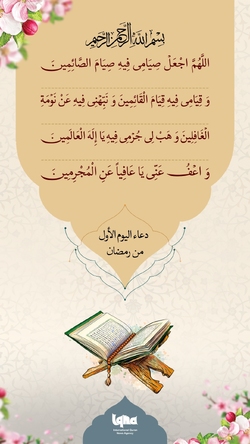 بِسْمِ اللَّهِ الرَّحْمَنِ الرَّحِيمِ
اللَّهُمَّ اجْعَلْ صِيَامِي فِيهِ صِيَامَ الصَّائِمِينَ
وَ قِيَامِي فِيهِ قِيَامَ الْقَائِمِينَ وَ نَبِّهْنِي فِيهِ عَنْ نَوْمَةِ
الْغَافِلِينَ وَ هَبْ لِي جُرْمِي فِيهِ يَا إِلَهَ الْعَالَمِينَ
وَ اعْفُ عَنِّي يَا عَافِياً عَنِ الْمُجْرِمِينَ
دعاء اليوم الأول
من رمضان
iqna
International Quran
News Agency